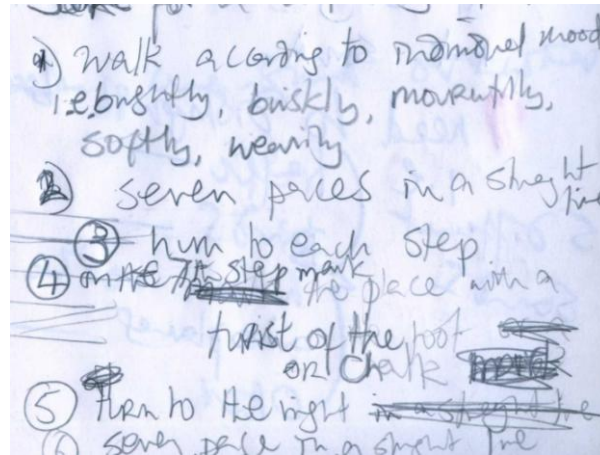 1) walk acording to individual mood
i.e. brightly, briskly, mournfully,
softly, wearily
2) seven paces in a streght line
3 hum to each step
4 on the 7th step mark the place with a
twist of the foot
or chalk
5 turn to the right in a streght line
6 seven pace in a streght line